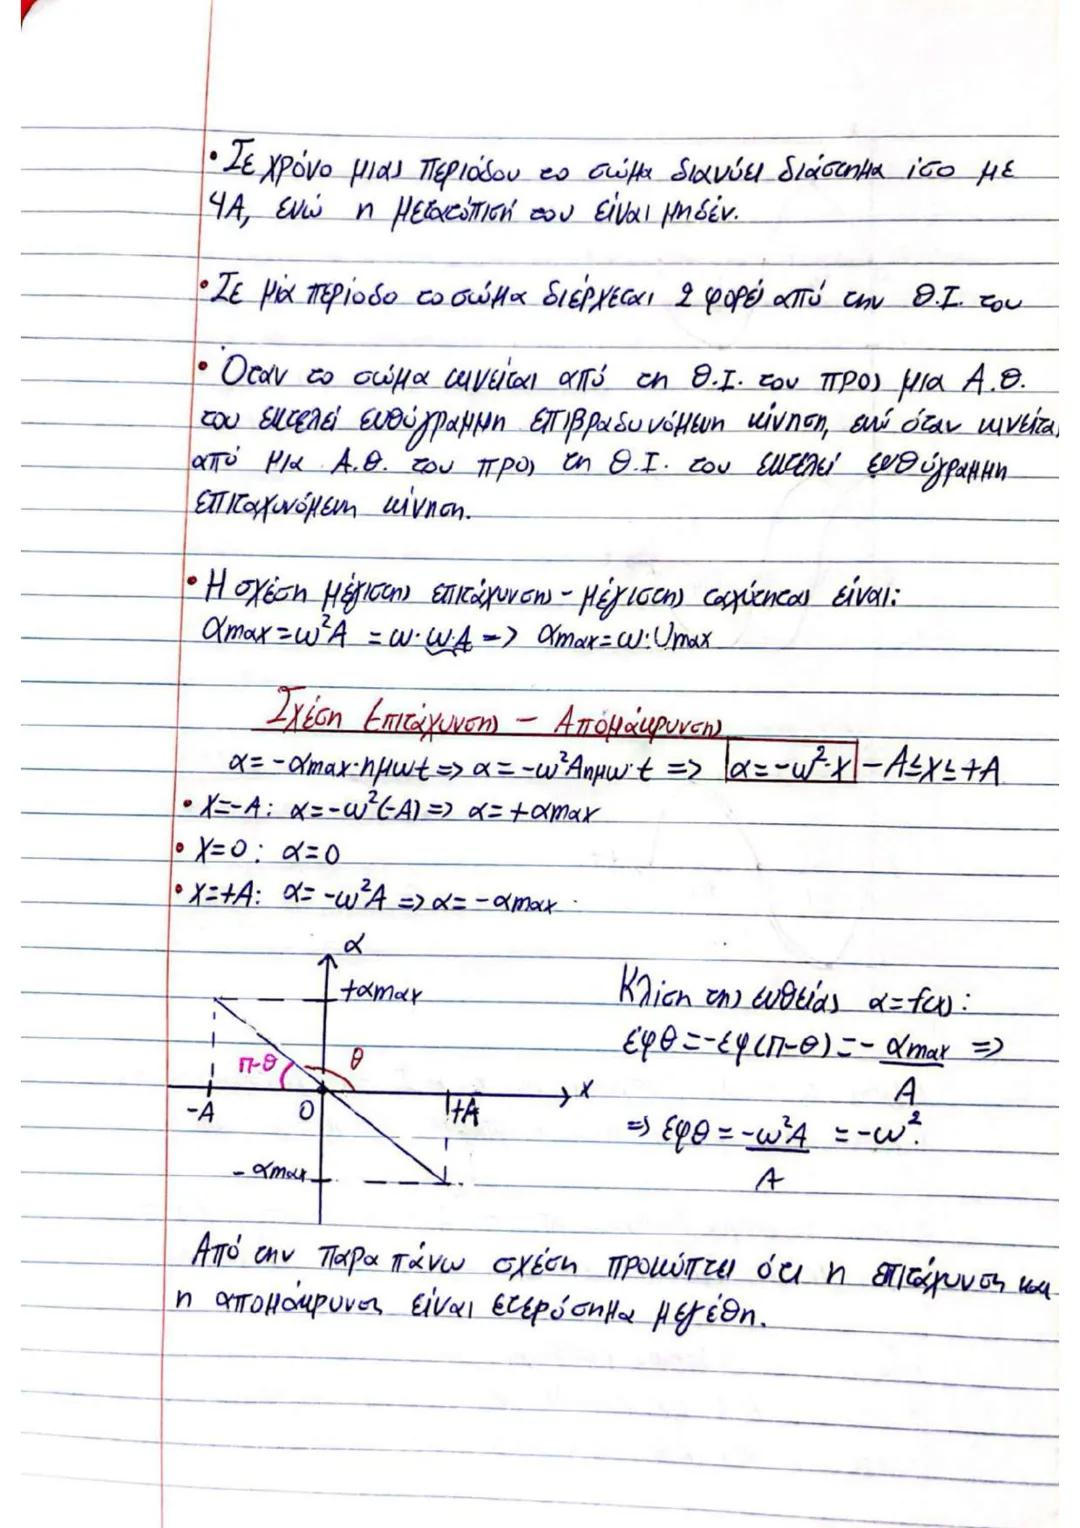 • Σε χρόνο μιας περιόδου το σώμα διανύει διάστημα ίσο με
4Α, ενώ η μετατόπισή του είναι μηδέν.
• Σε μία περίοδο το σώμα διέρχεται 2 φορές από την Θ.Ι. του
• Όταν το σώμα κινείται από τη Θ.Ι. του προς μια Α.Θ.
του εκτελεί ευθύγραμμη επιβραδυνόμενη κίνηση, ενώ όταν κινείται
από μια Α.Θ. του προς τη Θ.Ι. του εκτελεί ευθύγραμμη
επιταχυνόμενη κίνηση.
• Η σχέση μέγιστης επιτάχυνσης - μέγιστης ταχύτητας είναι:
αmax=ω²A = ω·ω·A => αmax=ω·Umax
Σχέση Επιτάχυνσης - Απομάκρυνσης
α=-αmax·ημωt => α=-ω²Αημω·t => α=-ω²·x -A≤x≤+A
• X=-A: α=-ω²(-A) => α=+αmax
• X=0: α=0
• X=+A: α= -ω²A => α= -αmax
α
+αmax
π-θ θ
-A 0 +A x
-αmax
Κλίση της ευθείας α=f(x):
εφθ=-εφ(π-θ)=- αmax =>
A
=> εφθ = -ω²A = -ω².
A
Από την παρα πάνω σχέση προκύπτει ότι η επιτάχυνση και
η απομάκρυνση είναι ετερόσημα μεγέθη.